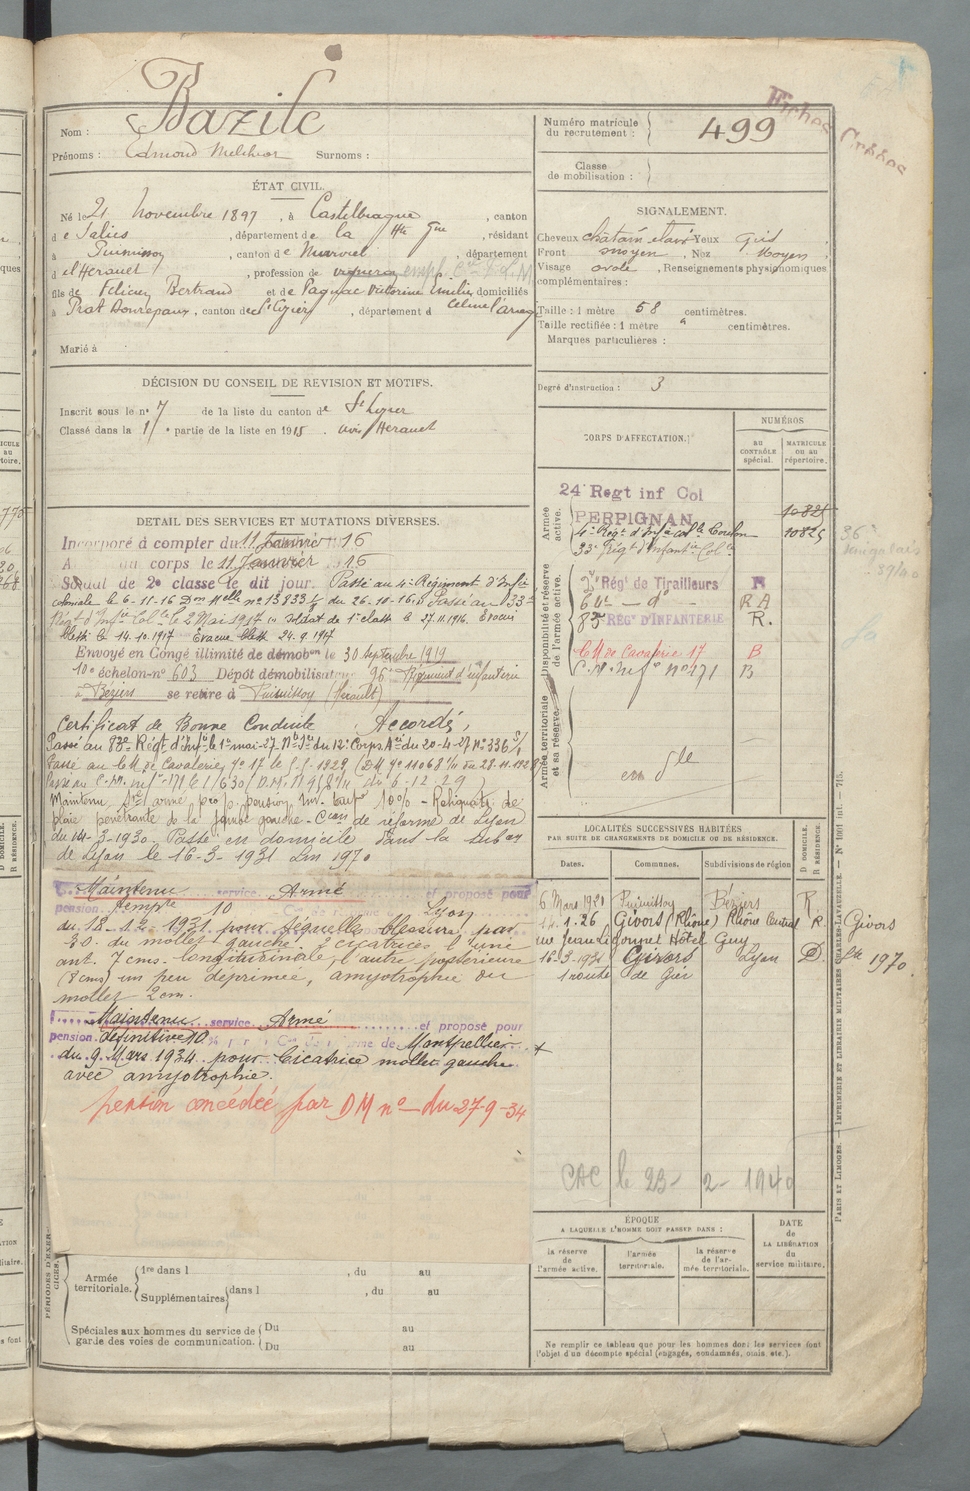 Fiches Croisées
Nom : Bazile
Prénoms : Edmond Melchior Surnoms :
Numéro matricule
du recrutement : 499
Classe
de mobilisation :
ÉTAT CIVIL.
Né le 21 novembre 1897, à Castelbiague, canton
de Salies, département de la Hte Gne, résidant
à Puimisson, canton de Murviel, département
d el'Herault, profession de
fils de Felicien Bertrand et de Victorine Emilie domiciliés
à Prat Bonrepaux, canton de St Lizier, département d
Marié à
SIGNALEMENT.
Cheveux châtain clair Yeux gris
Front moyen, Nez Moyen
Visage ovale, Renseignements physionomiques
complémentaires :
Taille : 1 mètre 58 centimètres.
Taille rectifiée : 1 mètre centimètres.
Marques particulières :
Degré d'instruction : 3
DÉCISION DU CONSEIL DE REVISION ET MOTIFS.
Inscrit sous le n° 7 de la liste du canton de St Lizier
Classé dans la 1e partie de la liste en 1915. Herault
DÉTAIL DES SERVICES ET MUTATIONS DIVERSES.
Incorporé à compter du 11 Janvier 1916
A au corps le 11 Janvier 1916
Soldat de 2e classe le dit jour. Passé au 4e Régiment d'Infie
coloniale le 6-11-16 Don Melle n° 13833 1/8 du 26-10-16. Passé au 33e
Régt d'Infie Colle le 2 Mai 1917 soldat de 1e classe le 27.11.1916. Evacué
blessé le 14.10.1917 Evacué blessé 24.9.1917
Envoyé en Congé illimité de démobon le 30 septembre 1919
10e échelon-n° 603 Dépôt démobilisateur 96e Régiment d'infanterie
à Béziers se retire à Puimisson (Herault)
Certificat de Bonne Conduite Accordé,
Passé au 83e Régt d'Infie le 1er mai 27 du 12e Corps du 20-4-27 n° 336
Passé au C.M. de Cavalerie n° 17 le 1929 (DM n° 11068 du 28.11.1928)
Passé au C.M. Infie 171 le 1/6 30 (D.M. du 6-12-29)
Maintenu Sce armé pro p. pension inv. temp 10% - Reliquats de
plaie pénétrante de la jambe gauche - Cion de réforme de Lyon
du 14-3-1930. Passé en domicile dans la Subon
de Lyon le 16-3-1931 Lm 1970
Maintenu service Armé et proposé pour
pension tempre 10 Lyon
du 18-12-1931 pour séquelles blessure par
du mollet gauche. 2 cicatrices l'une
ant. 7 cms. longitudinale, l'autre postérieure
(8 cms) un peu déprimée, amyotrophie du
mollet 2 cm.
Maintenu service Armé et proposé pour
pension définitive 10% de Montpellier
du 9 Mars 1934 pour Cicatrice mollet gauche
avec amyotrophie.
pension concédée par DM n° du 27-9-34
CORPS D'AFFECTATION.
NUMÉROS
AU CONTRÔLE spécial.
MATRICULE ou au répertoire.
Armée active.
24e Regt inf Col
PERPIGNAN 10825
4e Régt d'Infie colle Toulon 10825
33e Régt d'Infantie Colle
Disponibilité et réserve de l'armée active.
2e Rég' de Tirailleurs R
64e - d° - RA
83e REGt D'INFANTERIE R.
C M de Cavalerie 17 B
C.M. Infie N° 171 B
Armée territoriale et sa réserve.
36e
Sénégalais
39/40
LOCALITÉS SUCCESSIVES HABITÉES
PAR SUITE DE CHANGEMENTS DE DOMICILE OU DE RÉSIDENCE.
Dates. Communes. Subdivisions de région D DOMICILE. R RÉSIDENCE.
6 Mars 1920 Puimisson Béziers R
1.26 Givors (Rhône) Rhône Central R. Givors
rue Jean Ligonnet Hôtel Guy
16-3-1931 Givors Lyon D. Lm 1970
route de Gier
CAC le 23-2-1940
ÉPOQUE
A LAQUELLE L'HOMME DOIT PASSER DANS :
la réserve de l'armée active.
l'armée territoriale.
la réserve de l'armée territoriale.
DATE
de
LA LIBÉRATION
du
service militaire.
PÉRIODES D'EXERCICES.
Armée territoriale.
1re dans l , du au
Supplémentaires dans l , du au
Spéciales aux hommes du service de
garde des voies de communication.
Du au
Du au
Ne remplir ce tableau que pour les hommes dont les services font
l'objet d'un décompte spécial (engagés, condamnés, omis, etc.).
PARIS ET LIMOGES. — IMPRIMERIE ET LIBRAIRIE MILITAIRES CHARLES-LAVAUZELLE. — N° 1001 int. — 715.